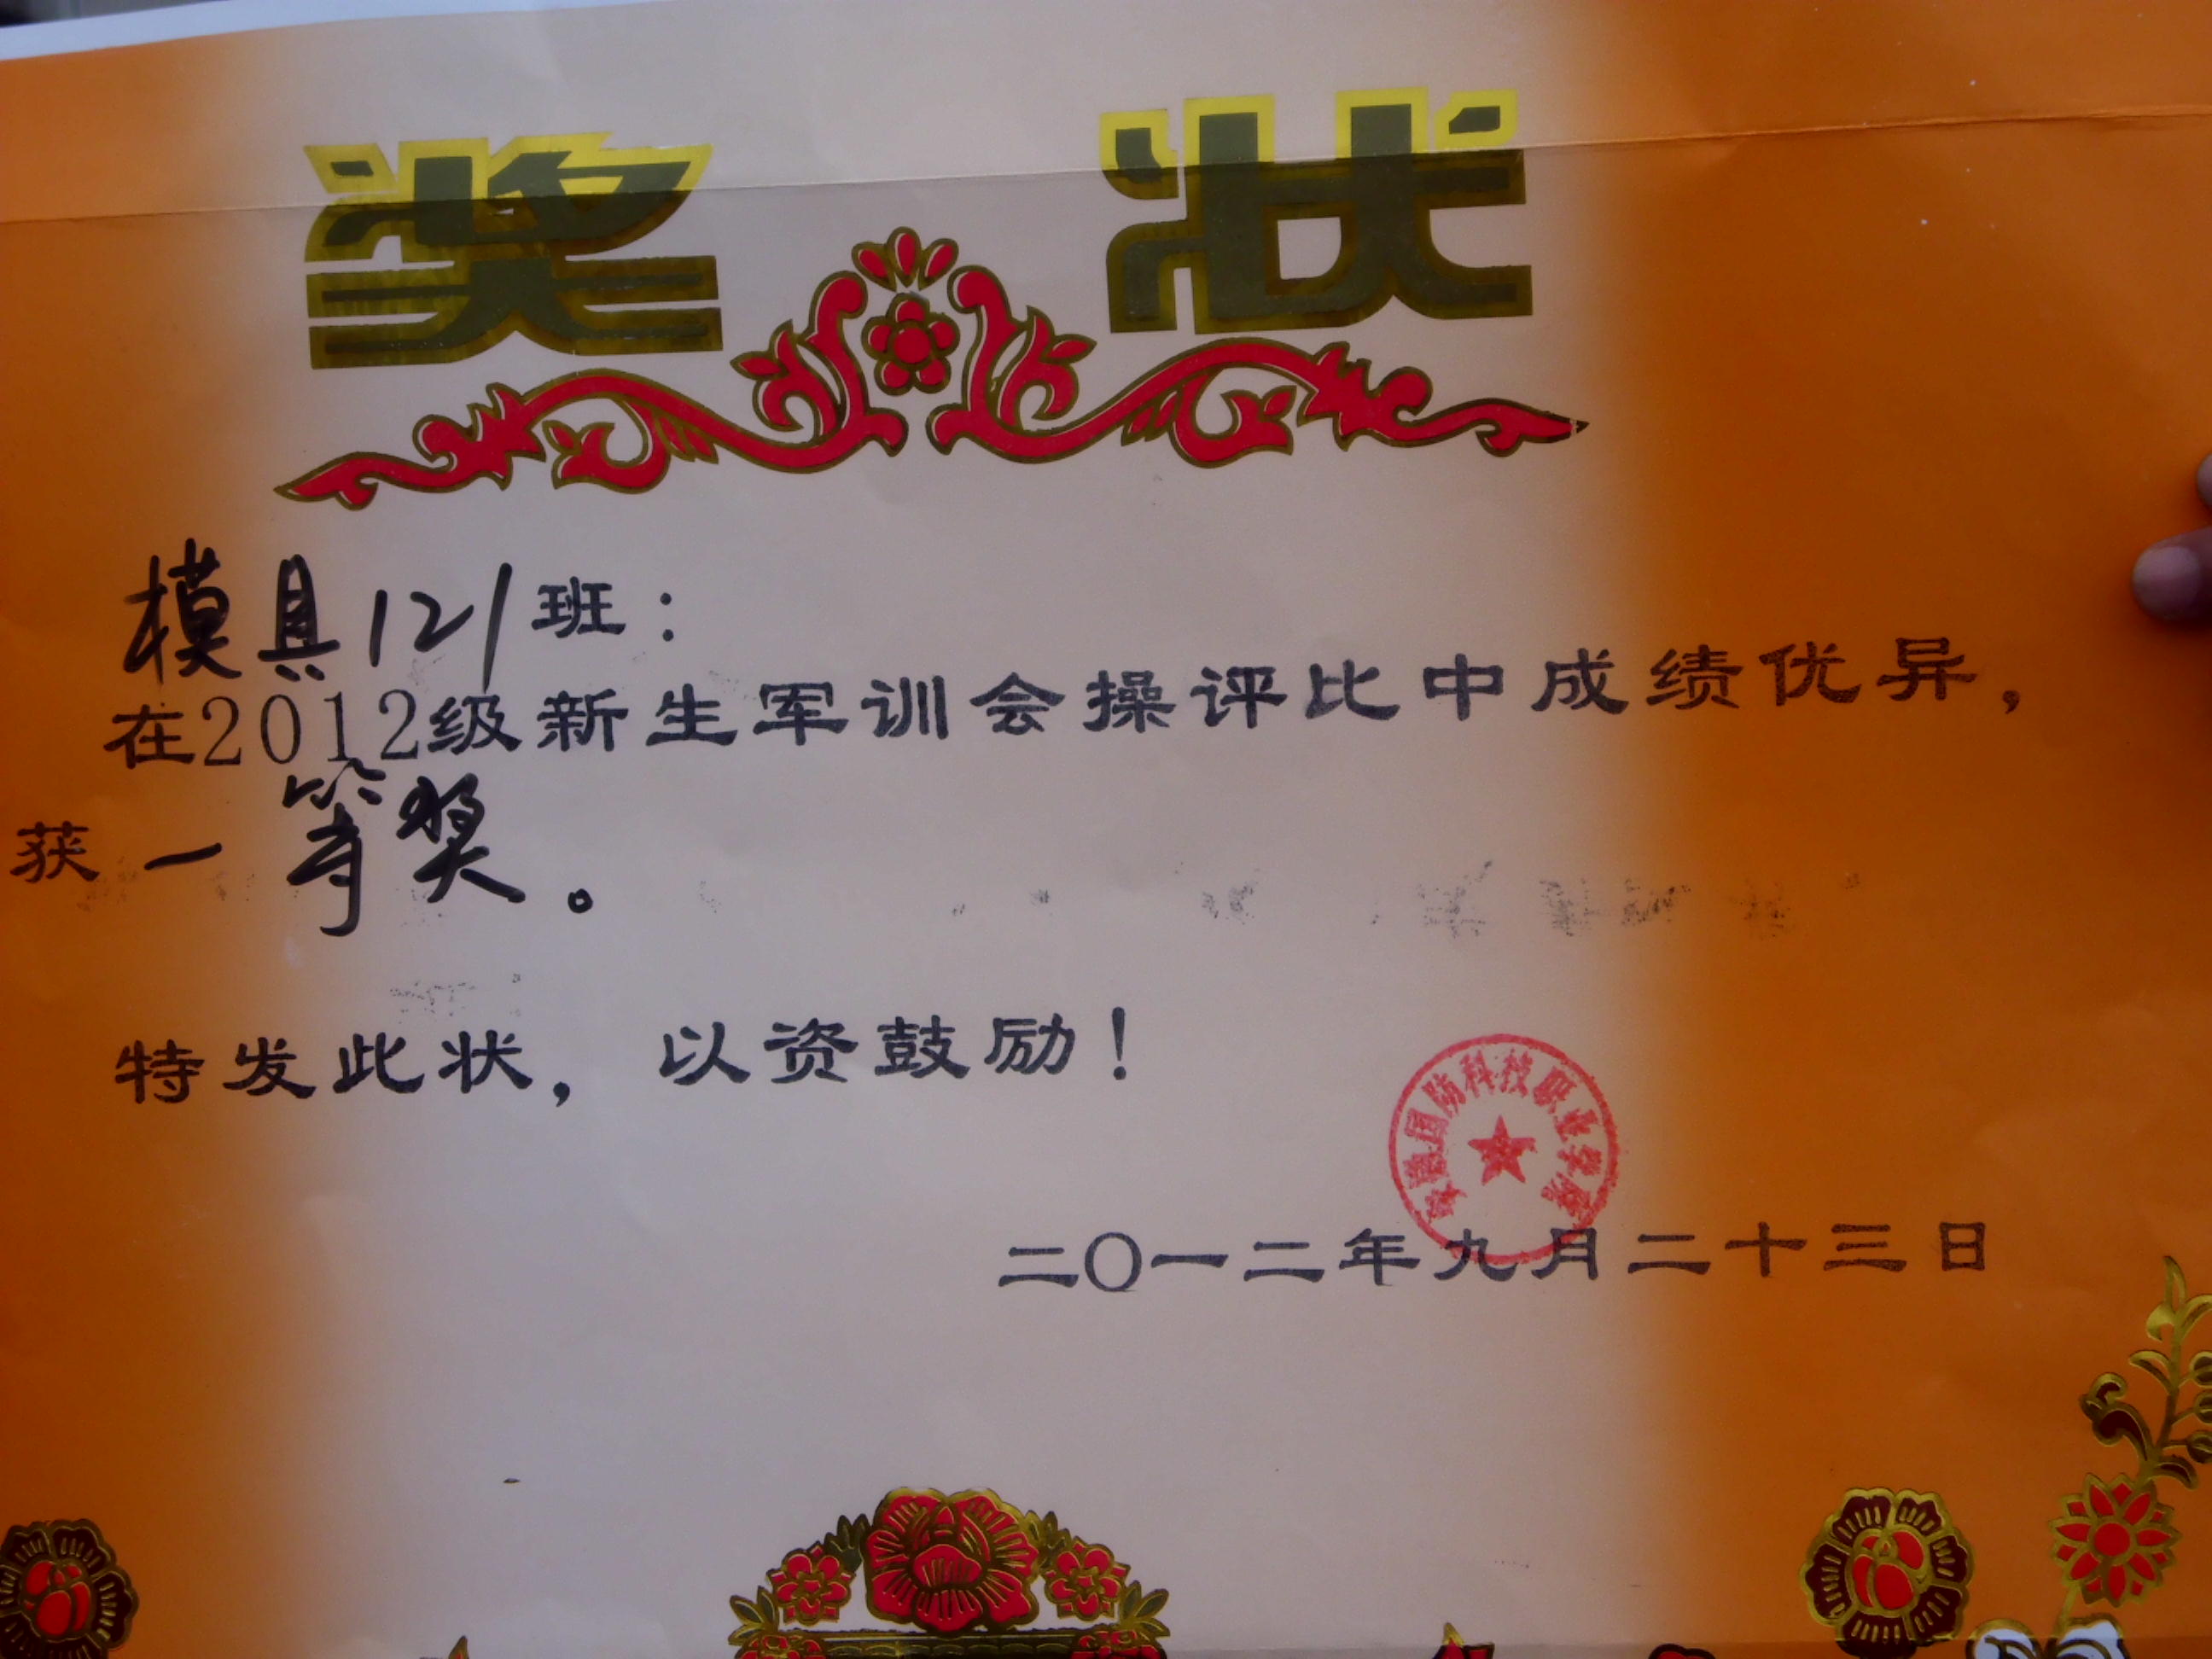 奖状
模具121班：
在2012级新生军训会操评比中成绩优异，
获一等奖。
特发此状，以资鼓励！
安徽国防科技职业学院
二〇一二年九月二十三日